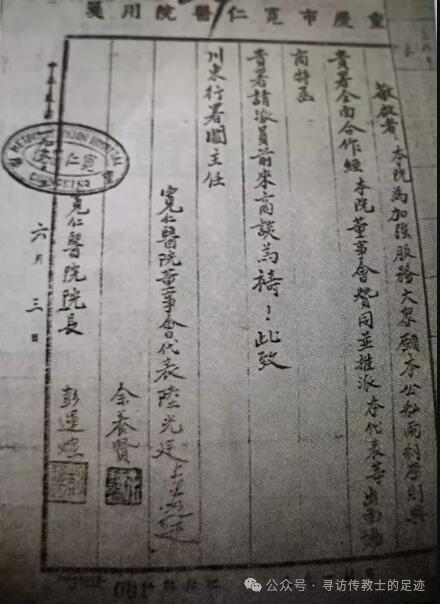 重慶市寬仁醫院用箋
敬啟者 本院為加強服務大眾願本公私兩利原則與
貴署全面合作經本院董事會贊同並推派本代表等出面洽
商特函
貴署請派員前來商談為禱！此致
川東行署閻主任
寬仁醫院董事會代表陸光廷
余養賢
寬仁醫院院長 彭
六月三日
METHODIST UNION HOSPITAL
寬仁
CHUNGKING
公众号 · 寻访传教士的足迹